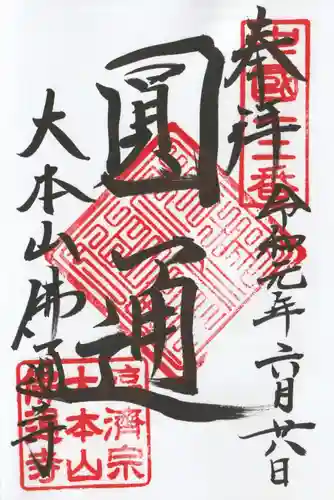 奉拝
中國十二番
令和元年六月廿八日
圓通
大本山佛通寺
臨濟宗
大本山
佛通寺